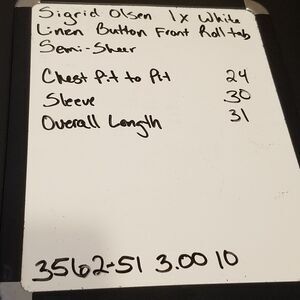 Sigrid Olsen 1x White
Linen Button Front Roll tab
Semi-Sheer
Chest Pit to Pit 24
Sleeve 30
Overall Length 31
3562-51 3.00 10